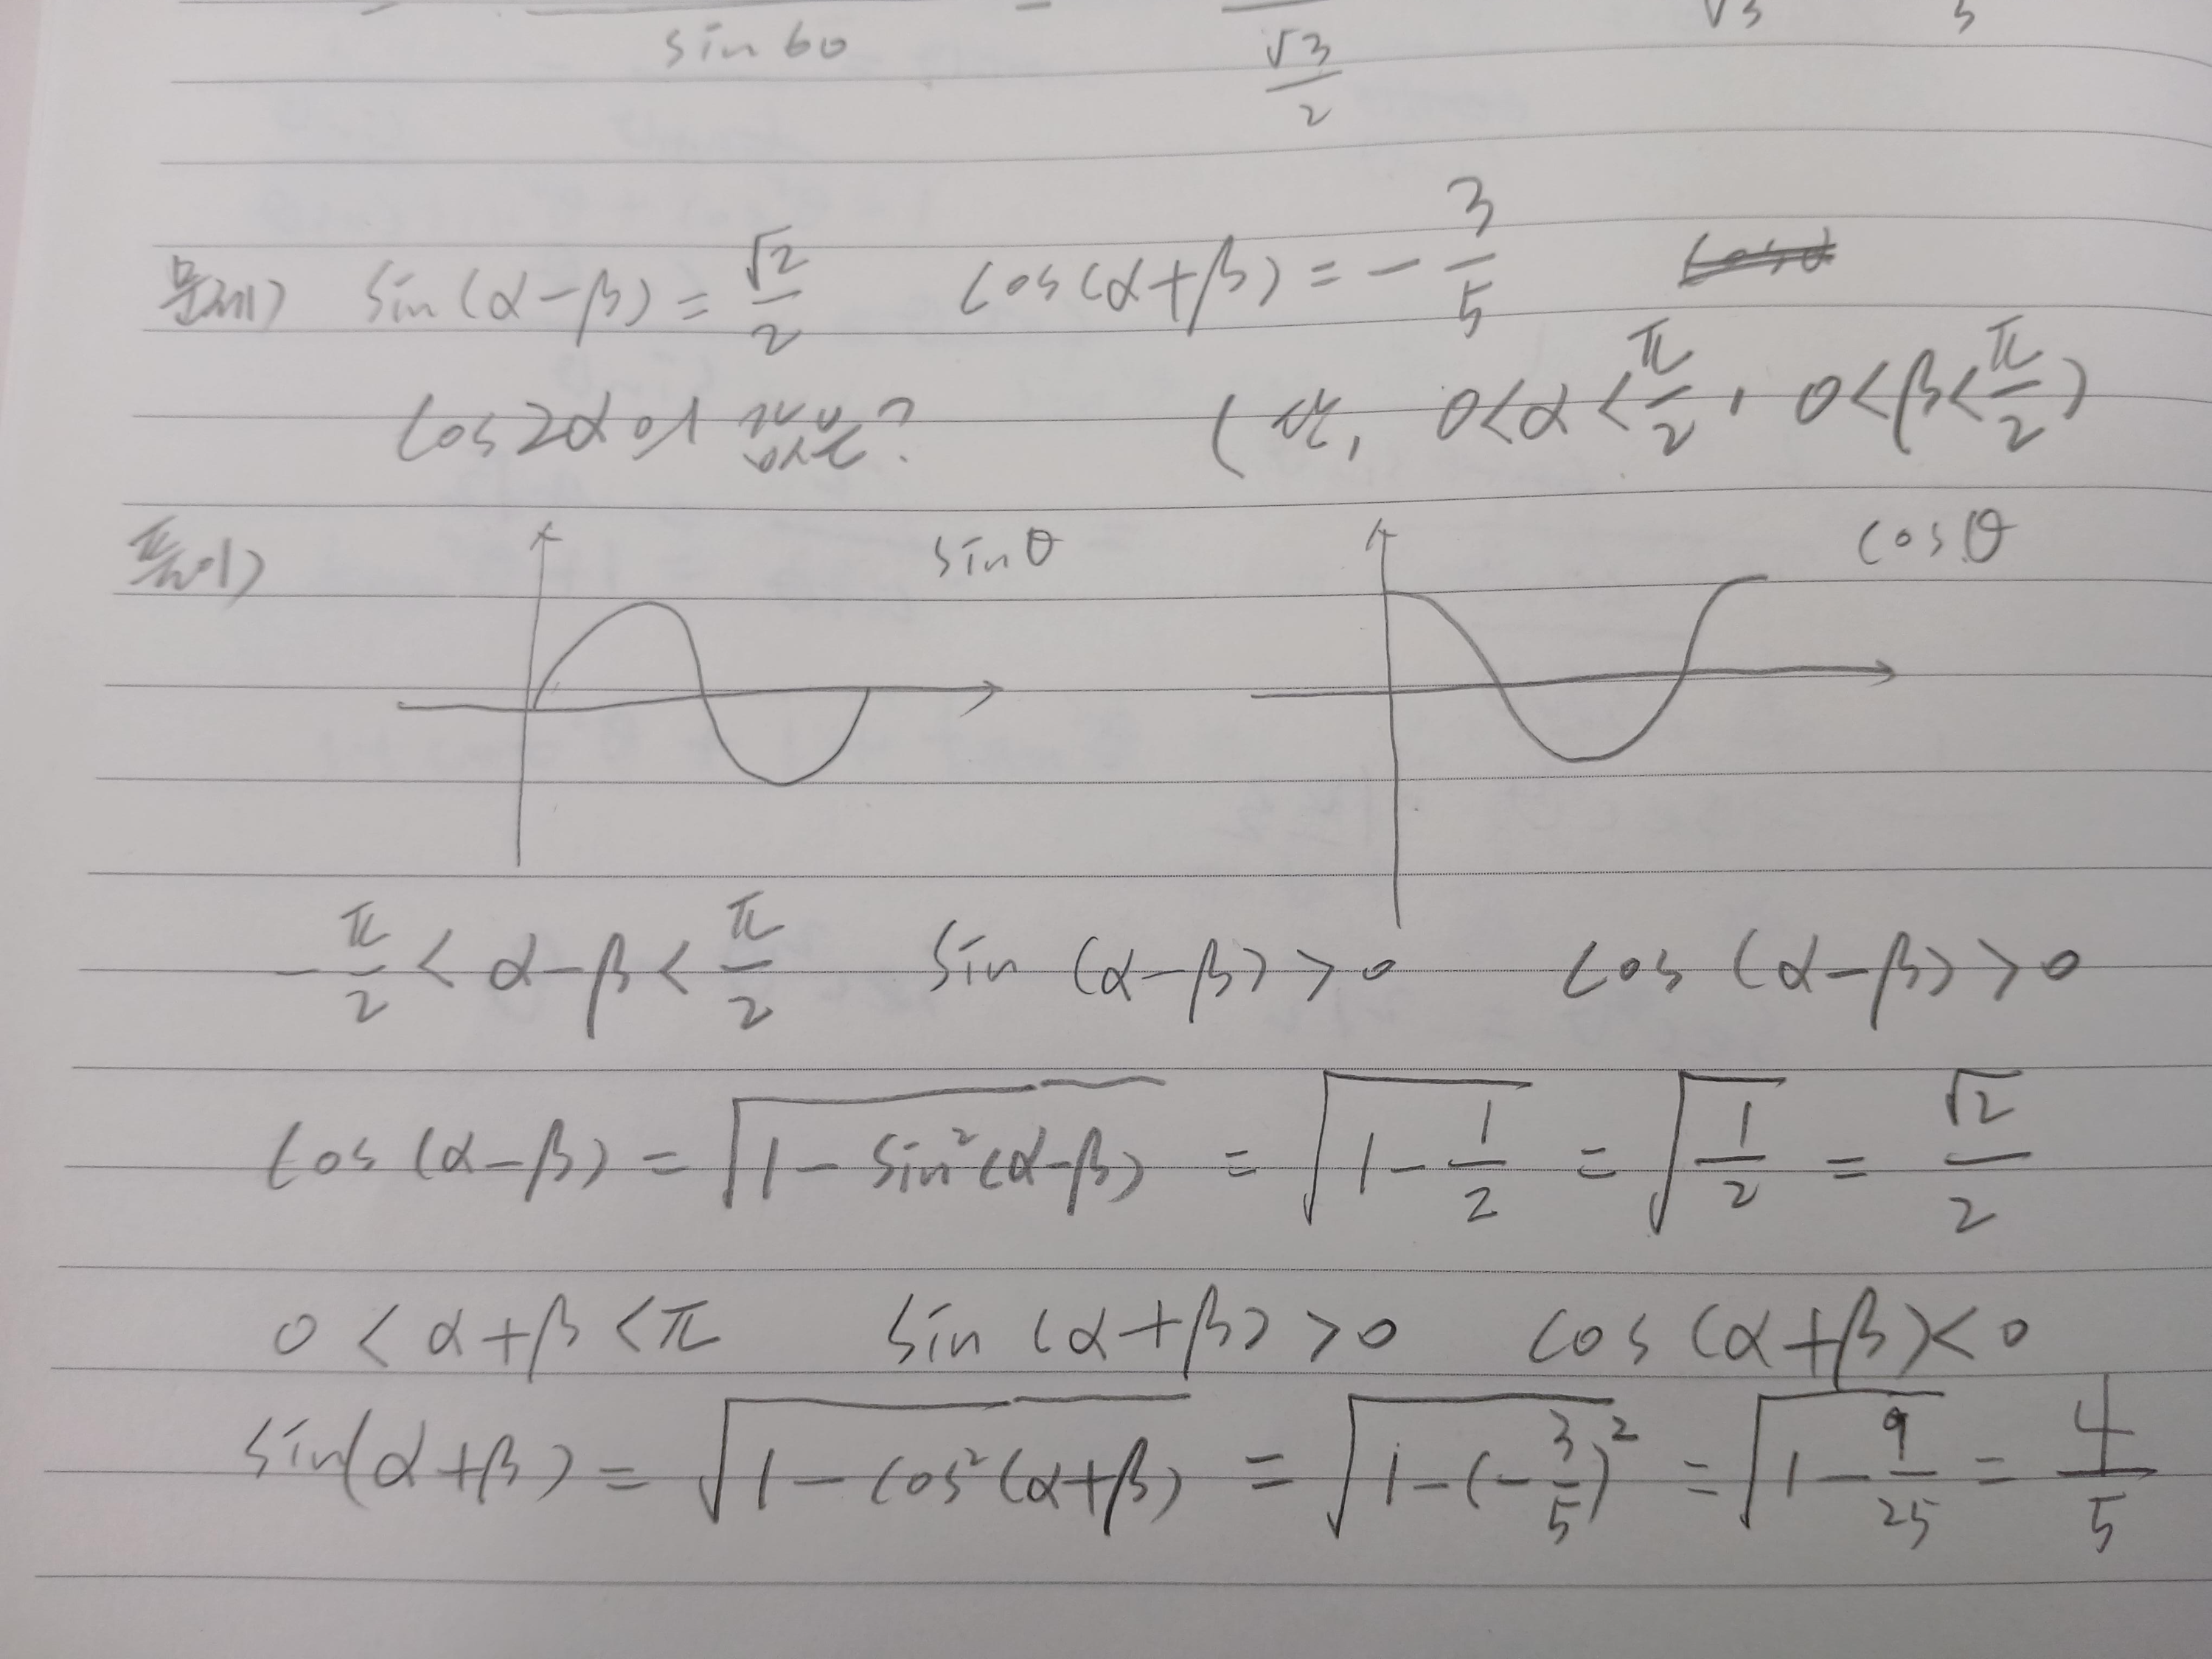 sin 60 √3/2 √3 5
문제) sin(α-β) = √2/2 cos(α+β) = -3/5
cos2α의 값은? (단, 0<α<π/2, 0<β<π/2)
풀이) sinθ cosθ
-π/2 < α-β < π/2 sin (α-β) > 0 cos (α-β) > 0
cos (α-β) = √(1 - sin²(α-β)) = √(1 - 1/2) = √(1/2) = √2/2
0 < α+β < π sin (α+β) > 0 cos (α+β) < 0
sin(α+β) = √(1 - cos²(α+β)) = √(1-(-3/5)²) = √(1 - 9/25) = 4/5